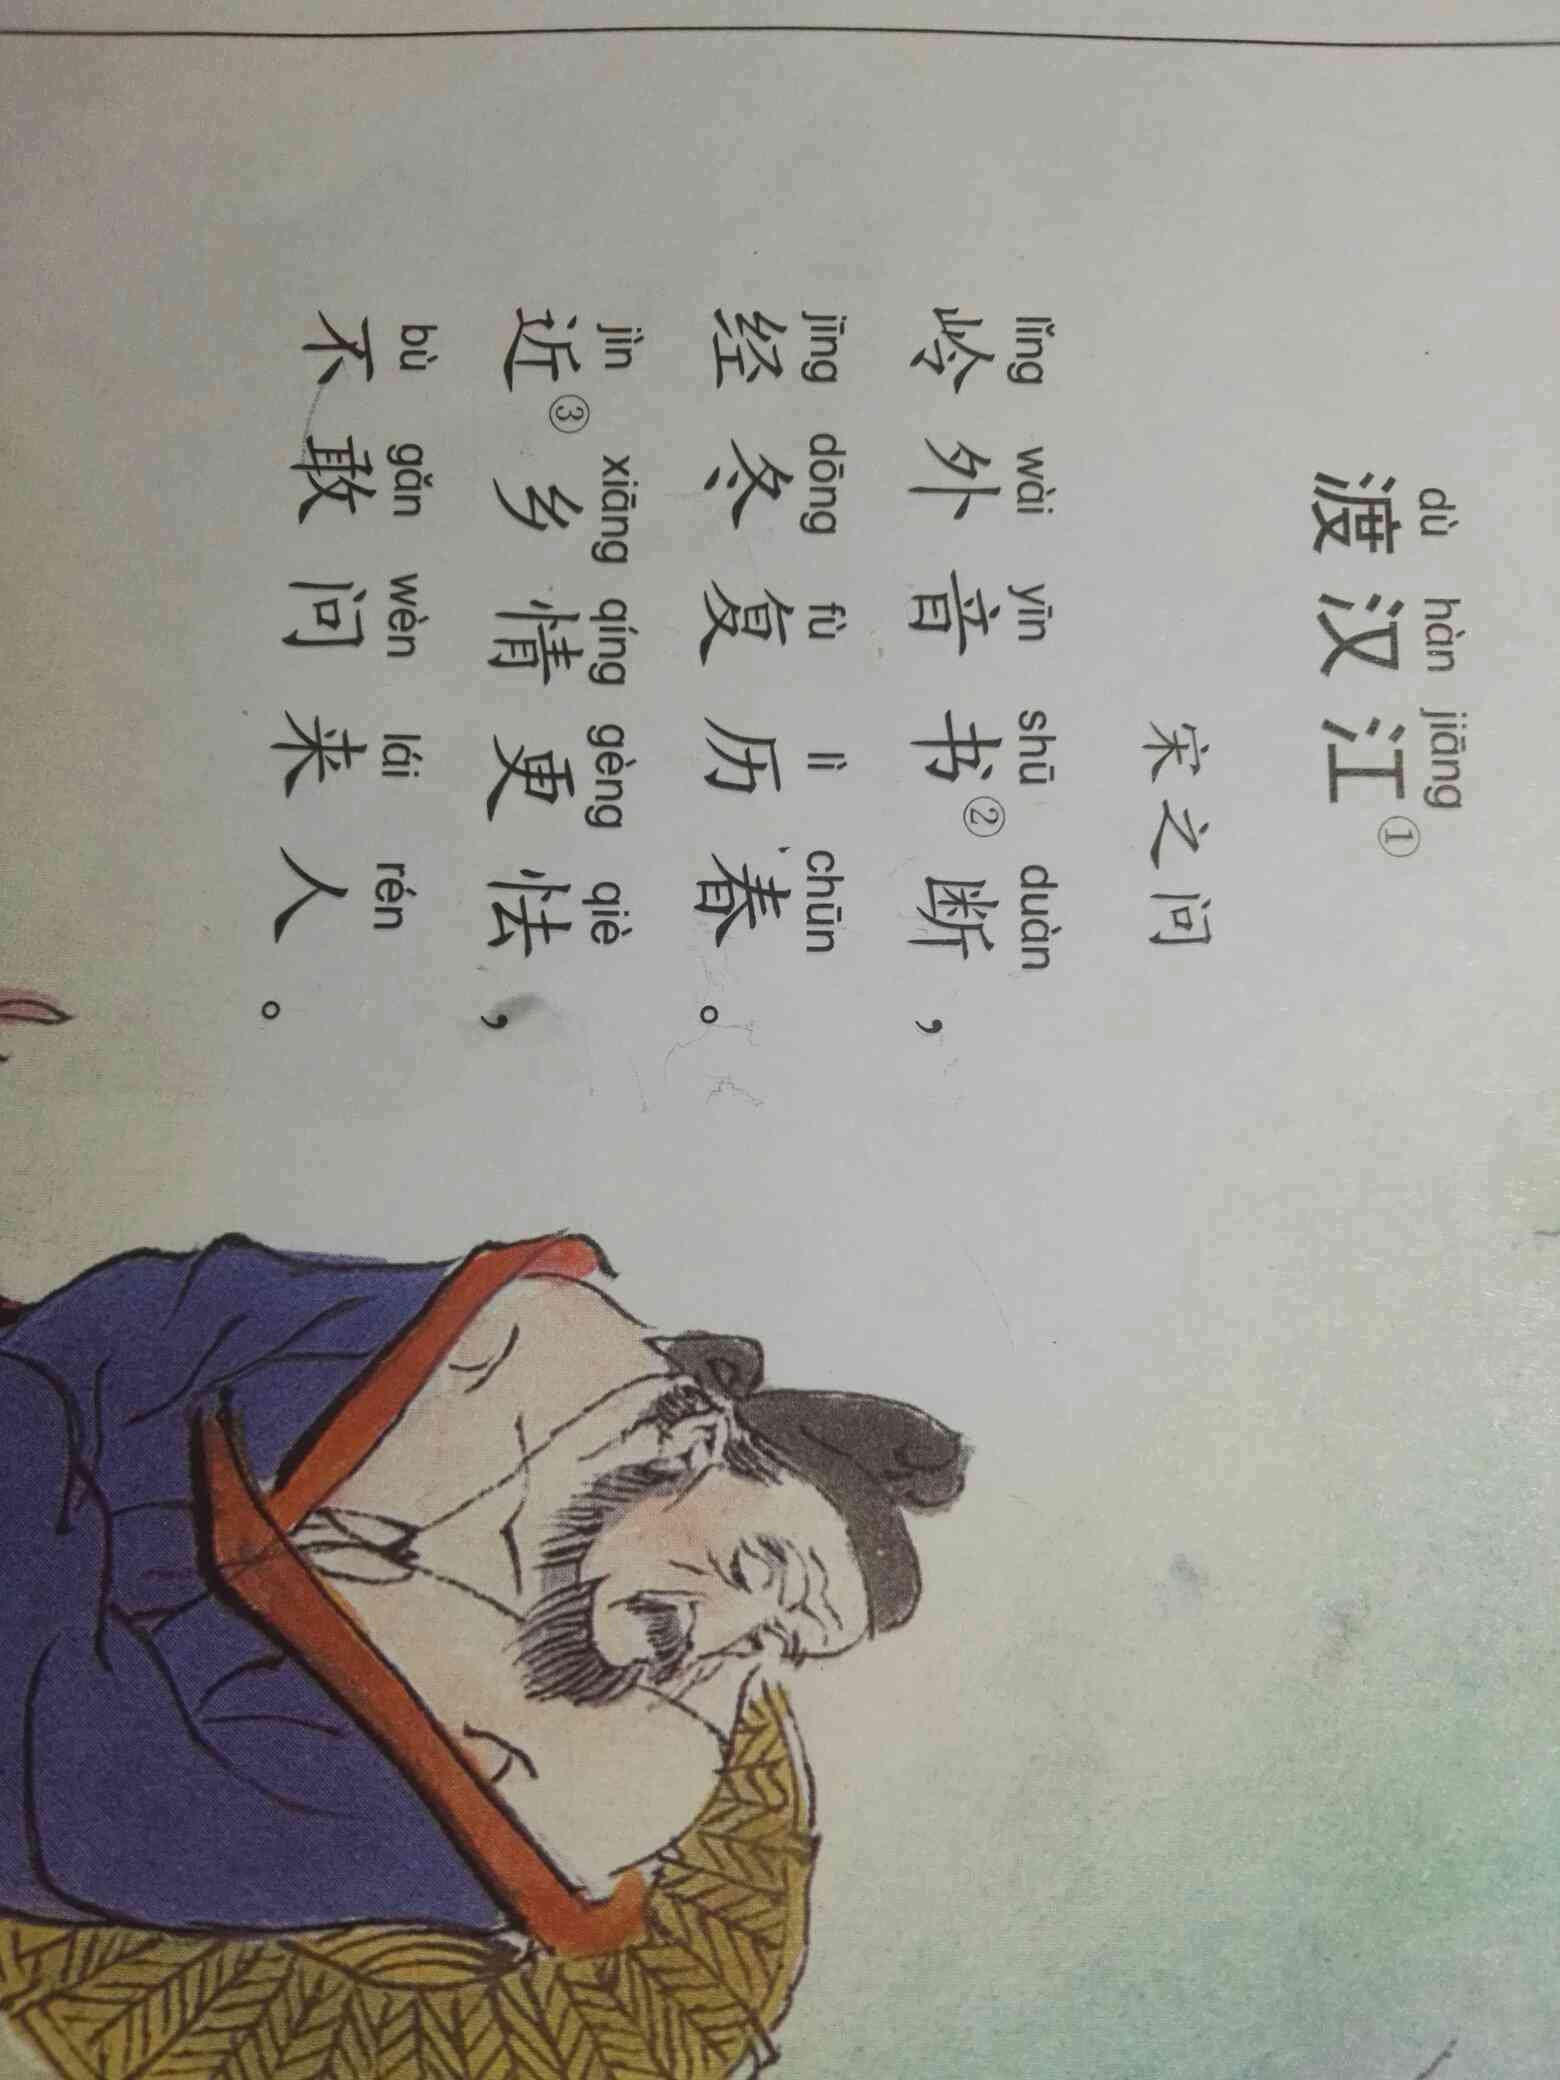 dù hàn jiāng
渡汉江①
宋之问
lǐng wài yīn shū duàn
岭外音书②断，
jīng dōng fù lì chūn
经冬复历春。
jìn xiāng qíng gèng qiè
近③乡情更怯，
bù gǎn wèn lái rén
不敢问来人。